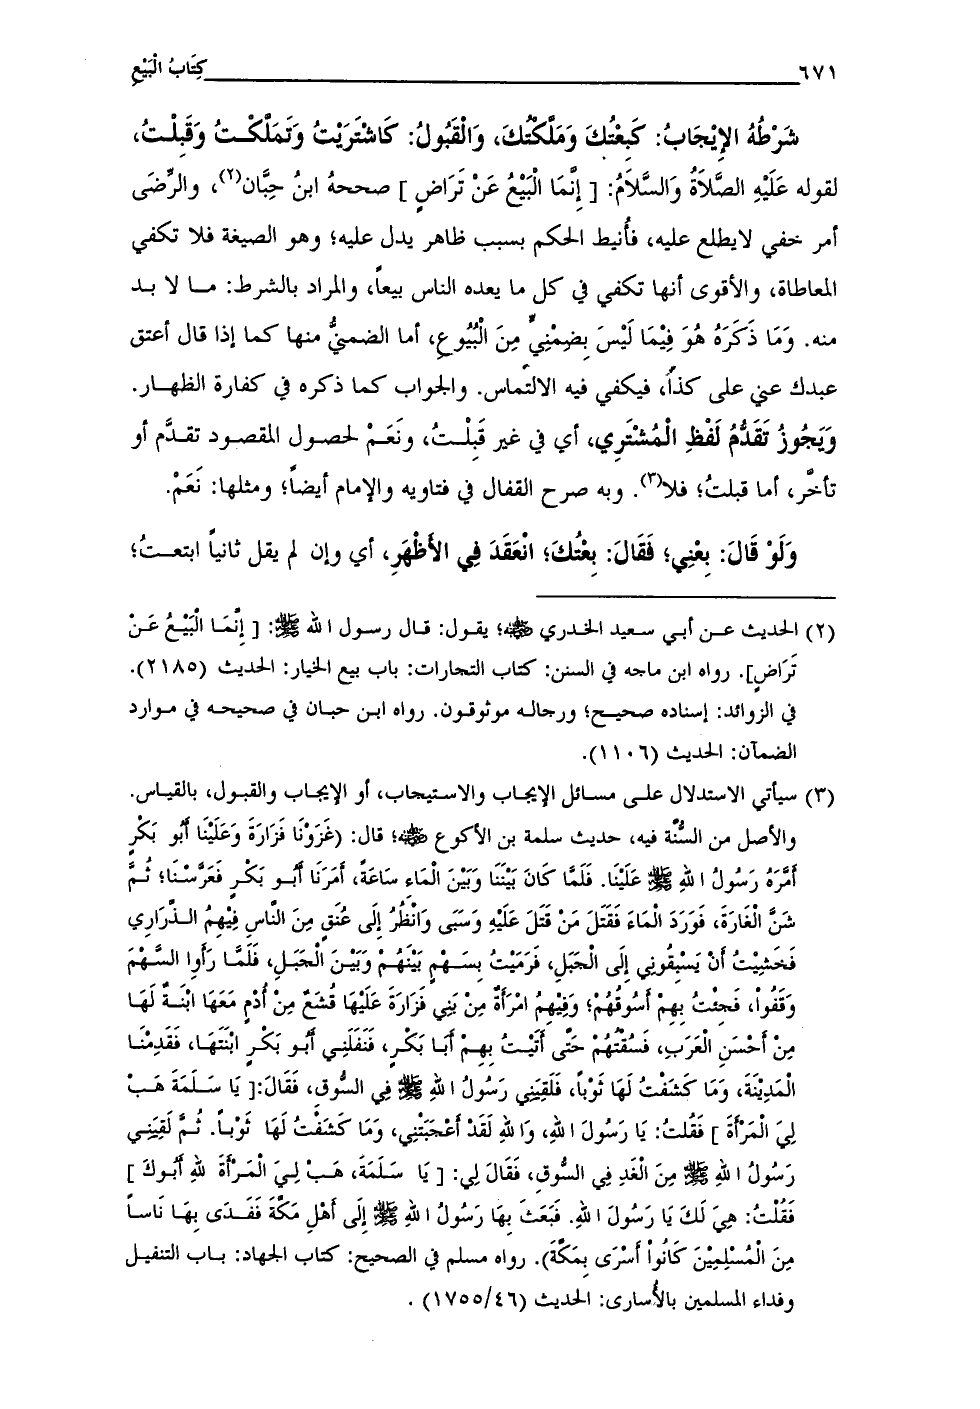 ٦٧١ كِتَابُ الْبَيْعِ
شَرْطُهُ الإِيْجَابُ: كَبِعْتُكَ وَمَلَّكْتُكَ، وَالْقَبُولُ: كَاشْتَرَيْتُ وَتَمَلَّكْتُ وَقَبِلْتُ،
لقوله عَلَيْهِ الصَّلاَةُ وَالسَّلاَمُ: [ إِنَّمَا الْبَيْعُ عَنْ تَرَاضٍ ] صححهُ ابنُ حِبَّان(٢)، والرِّضَى
أمر خفي لايطلع عليه، فأُنيط الحكم بسبب ظاهر يدل عليه؛ وهو الصيغة فلا تكفي
المعاطاة، والأقوى أنها تكفي في كل ما يعده الناس بيعاً، والمراد بالشرط: ما لا بد
منه. وَمَا ذَكَرَهُ هُوَ فِيْمَا لَيْسَ بِضِمْنِيٍّ مِنَ الْبُيُوعِ، أما الضمنيُّ منها كما إذا قال أعتق
عبدك عني على كذا، فيكفي فيه الالتماس. والجواب كما ذكره في كفارة الظهار.
وَيَجُوزُ تَقَدُّمُ لَفْظِ الْمُشْتَرِي، أي في غير قَبِلْتُ، ونَعَمْ لحصول المقصود تقدَّم أو
تأخَّر، أما قبلتُ؛ فلا(٣). وبه صرح القفال في فتاويه والإمام أيضاً؛ ومثلها: نَعَمْ.
وَلَوْ قَالَ: بِعْنِي؛ فَقَالَ: بِعْتُكَ؛ انْعَقَدَ فِي الأَظْهَرِ، أي وإن لم يقل ثانياً ابتعتُ؛
(٢) الحديث عن أبي سعيد الخدري ﷺ؛ يقول: قال رسول الله ﷺ: [ إِنَّمَا الْبَيْعُ عَنْ
تَرَاضٍ]. رواه ابن ماجه في السنن: كتاب التجارات: باب بيع الخيار: الحديث (٢١٨٥).
في الزوائد: إسناده صحيح؛ ورجاله موثوقون. رواه ابن حبان في صحيحه في موارد
الضمآن: الحديث (١١٠٦).
(٣) سيأتي الاستدلال على مسائل الإيجاب والاستيجاب، أو الإيجاب والقبول، بالقياس.
والأصل من السُّنَّة فيه، حديث سلمة بن الأكوع ﷺ؛ قال: (غَزَوْنَا فَزَارَةَ وَعَلَيْنَا أَبُو بَكْرٍ
أَمَّرَهُ رَسُولُ اللهِ ﷺ عَلَيْنَا. فَلَمَّا كَانَ بَيْنَنَا وَبَيْنَ الْمَاءِ سَاعَةً، أَمَرَنَا أَبُو بَكْرٍ فَعَرَّسْنَا؛ ثُمَّ
شَنَّ الْغَارَةَ، فَوَرَدَ الْمَاءَ فَقَتَلَ مَنْ قَتَلَ عَلَيْهِ وَسَبَى وَانْظُرُ إِلَى عُنَقٍ مِنَ النَّاسِ فِيْهِمُ الذَّرَارِي
فَخَشِيْتُ أَنْ يَسْبِقُونِي إِلَى الْجَبَلِ، فَرَمَيْتُ بِسَهْمٍ بَيْنَهُمْ وَبَيْنَ الْجَبَلِ، فَلَمَّا رَأَوا السَّهْمَ
وَقَفُواْ، فَجِئْتُ بِهِمْ أَسُوقُهُمْ؛ وَفِيْهِمُ امْرَأَةٌ مِنْ بَنِي فَزَارَةَ عَلَيْهَا قُشَعٌ مِنْ أُدُمٍ مَعَهَا ابْنَةٌ لَهَا
مِنْ أَحْسَنِ الْعَرَبِ، فَسُقْتُهُمْ حَتَّى أَتَيْتُ بِهِمْ أَبَا بَكْرٍ، فَنَفَلَنِي أَبُو بَكْرٍ ابْنَتَهَا، فَقَدِمْنَا
الْمَدِيْنَةَ، وَمَا كَشَفْتُ لَهَا ثَوْباً، فَلَقِيَنِي رَسُولُ اللهِ ﷺ فِي السُّوقِ، فَقَالَ:[ يَا سَلَمَةَ هَبْ
لِيَ الْمَرْأَةَ ] فَقُلتُ: يَا رَسُولَ اللهِ، وَاللهِ لَقَدْ أَعْجَبَتْنِي، وَمَا كَشَفْتُ لَهَا ثَوْباً. ثُمَّ لَقِيَنِي
رَسُولُ اللهِ ﷺ مِنَ الْغَدِ فِي السُّوقِ، فَقَالَ لِي: [ يَا سَلَمَةَ، هَبْ لِيَ الْمَرْأَةَ للهِ أَبُوكَ ]
فَقُلْتُ: هِيَ لَكَ يَا رَسُولَ اللهِ. فَبَعَثَ بِهَا رَسُولُ اللهِ ﷺ إِلَى أَهْلِ مَكَّةَ فَفَدَى بِهَا نَاساً
مِنَ الْمُسْلِمِيْنَ كَانُواْ أَسْرَى بِمَكَّةَ). رواه مسلم في الصحيح: كتاب الجهاد: باب التنفيل
وفداء المسلمين بالأُسارى: الحديث (١٧٥٥/٤٦) .